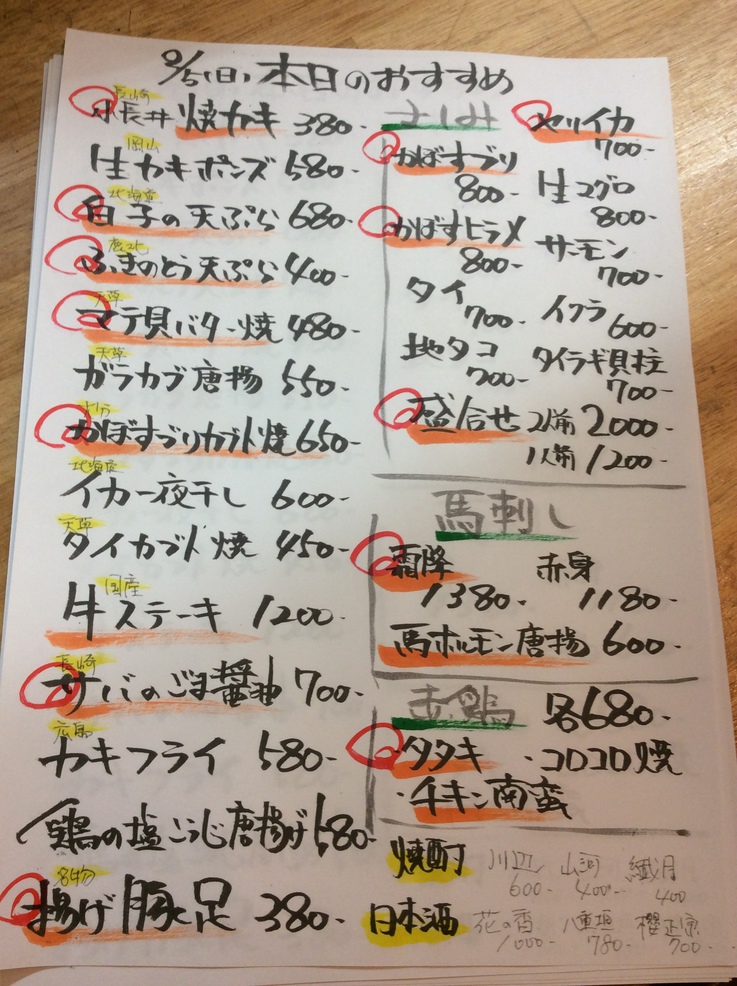 2/5(日)本日のおすすめ
長崎
小長井焼カキ 380-
岡山
生カキポンズ 580-
北海道
白子の天ぷら 680-
鹿北
ふきのとう天ぷら 400-
天草
マテ貝バター焼 480-
天草
ガラカブ唐揚 550-
かぼすブリカブト焼 650-
北海道
イカ一夜干し 600-
天草
タイカブト焼 450-
国産
牛ステーキ 1200-
長崎
サバのごま醤油 700-
広島
カキフライ 580-
鶏の塩こうじ唐揚げ 580-
名物
揚げ豚足 380-
さしみ
ヤリイカ
700-
かぼすブリ
800-
生マグロ
800-
かぼすヒラメ
800-
サーモン
700-
タイ
700-
イクラ
600-
地タコ
700-
タイラギ貝柱
700-
盛合せ 2人前 2000-
1人前 1200-
馬刺し
霜降 赤身
1380- 1180-
馬ホルモン唐揚 600-
赤鶏 各680-
・タタキ ・コロコロ焼
・チキン南蛮
焼酎 川辺 山河 繊月
600- 400- 400
日本酒 花の香 八重垣 櫻正宗
1000- 780- 700-